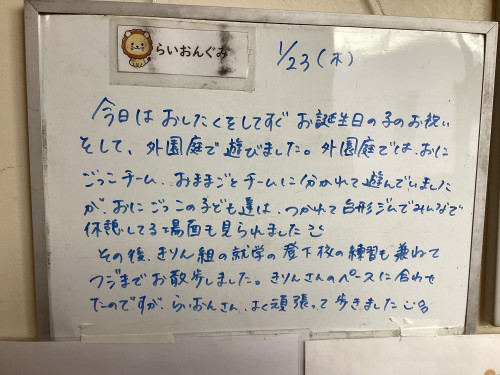 らいおんぐみ
1/23(木)
今日はおしたくをしてすぐお誕生日の子のお祝い
をして、外園庭で遊びました。外園庭では、おに
ごっこチーム、おままごとチームに分かれて遊んでいました
が、おにごっこの子ども達は、つかれて台形ジムでみんなで
休憩してる場面も見られました
その後、きりん組の就学の登下校の練習も兼ねて
フジまでお散歩しました。きりんさんのペースに合わせ
たのですが、らいおんさん、よく頑張って歩きました